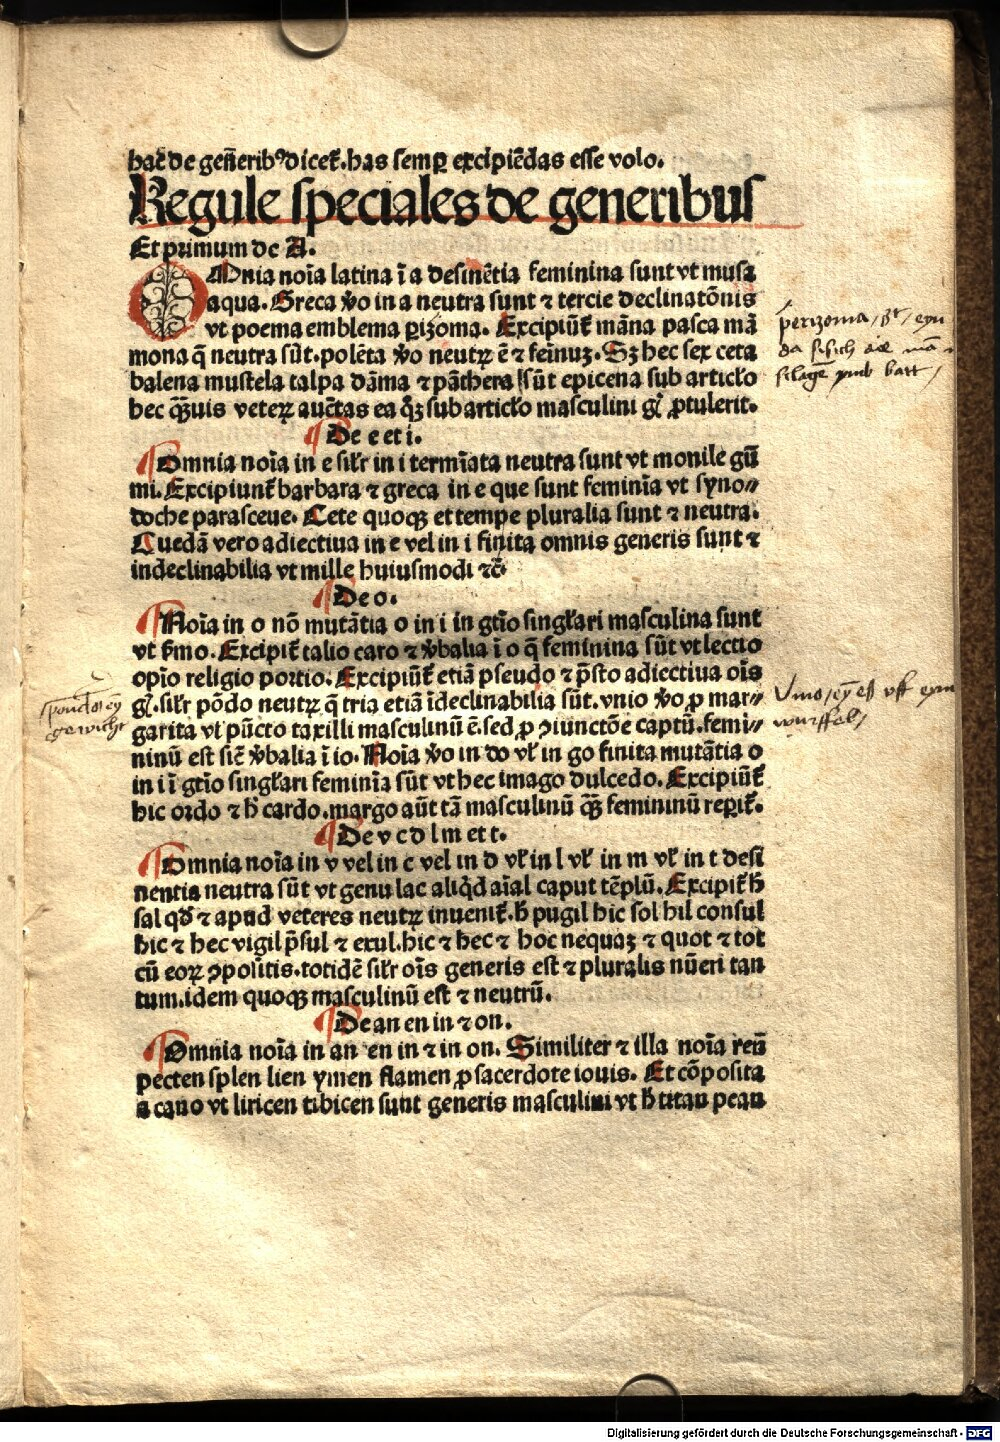 hac̄ de gen̄eribꝰ dicet᷑. has semꝑ excipiēdas esse volo.
Regule speciales de generibus
Et primum de A.
OMnia noīa latina ī a desinētia feminina sunt vt musa
aqua. Greca ꝟo in a neutra sunt ⁊ tercie declinatōnis
vt poema emblema ꝑizoma. Excipiūt᷑ māna pasca mā
mona q̄ neutra sūt. polēta ꝟo neutꝝ ē ⁊ femīnuꝫ. Sꝫ hec sex ceta
balena mustela talpa dāma ⁊ pāthera sūt epicena sub articĺo
hec qᷓꝫuis veteꝝ auc̄tas ea q̄ꝫ sub articĺo masculini gn̄̄is ꝓtulerit.
De e et i.
Omnia noīa in e sil̄r in i termīata neutra sunt vt monile gū
mi. Excipiunt᷑ barbara ⁊ greca in e que sunt feminīa vt syno⸗
doche parasceue. Cete quoqꝫ et tempe pluralia sunt ⁊ neutra.
Quedā vero adiectiua in e vel in i finita omnis generis sunt ⁊
indeclinabilia vt mille huiusmodi ⁊c̄
De o.
Noīa in o nō mutātia o in i in gtīo singĺari masculina sunt
vt s̄mo. Excipit᷑ talio caro ⁊ ꝟbalia ī o q̄ feminina sūt vt lectio
opīo religio portio. Excipiūt᷑ etiā pseudo ⁊ p̄sto adiectiua oīs
gn̄̄is. sil̄r pōdo neutꝝ q̄ tria etiā īdeclinabilia sūt. vnio ꝟo ꝓ mar⸗
garita vl̄ pūcto taxilli masculinū ē. sed ꝓ ꝯiunctōe captū. femi⸗
ninū est sic̄ ꝟbalia ī io. Noīa ꝟo in do vl̄ in go finita mutātia o
in i ī gtīo singĺari feminīa sūt vt hec imago dulcedo. Excipiūt᷑
hic ordo ⁊ h̄ cardo. margo aūt tā masculinū qᷓꝫ femininū reꝑit᷑.
De v c d l m et t.
Omnia noīa in v vel in c vel in d vl̄ in l vl̄ in m vl̄ in t desi
nentia neutra sūt vt genu lac aliq̇d aīal caput tēplū. Excipit᷑ h̄
sal qḋ ⁊ apud veteres neutꝝ inuenit᷑. h̄ pugil hic sol hil consul
hic ⁊ hec vigil p̄sul ⁊ exul. hic ⁊ hec ⁊ hoc nequaꝫ ⁊ quot ⁊ tot
cū eoꝝ ꝯpositis. totidē sil̄r oīs generis est ⁊ pluralis nūeri tan
tum. idem quoqꝫ masculinū est ⁊ neutrū.
De an en in ⁊ on.
Omnia noīa in an en in ⁊ in on. Similiter ⁊ illa noīa ren̄
pecten splen lien ymen flamen ꝓ sacerdote iouis. Et cōposita
a cano vt liricen tibicen sunt generis masculini vt h̄ titan pean
perizoma
pondo ey
gewicht
Vnio ey eß vff eym
wurffel
Digitalisierung gefördert durch die Deutsche Forschungsgemeinschaft - DFG